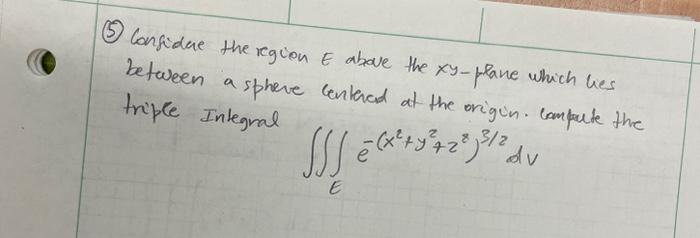 ⑤ Considere the region E above the xy-plane which lies
between a sphere centered at the origin. Compute the
triple Integral
∭ e^-(x²+y²+z²)^3/2 dv
E